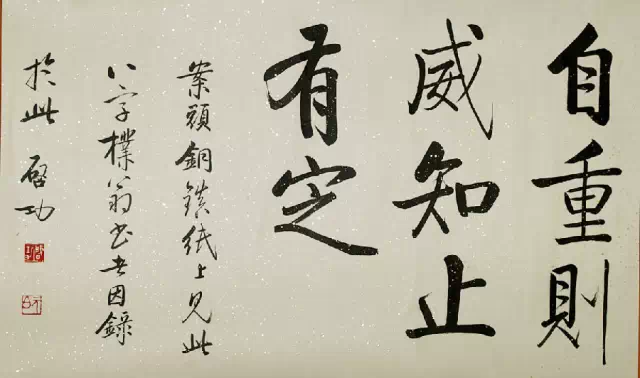 自重則
威知止
有定
案頭銅鎮紙上見此
八字樸翁書去因錄
於此 啓功